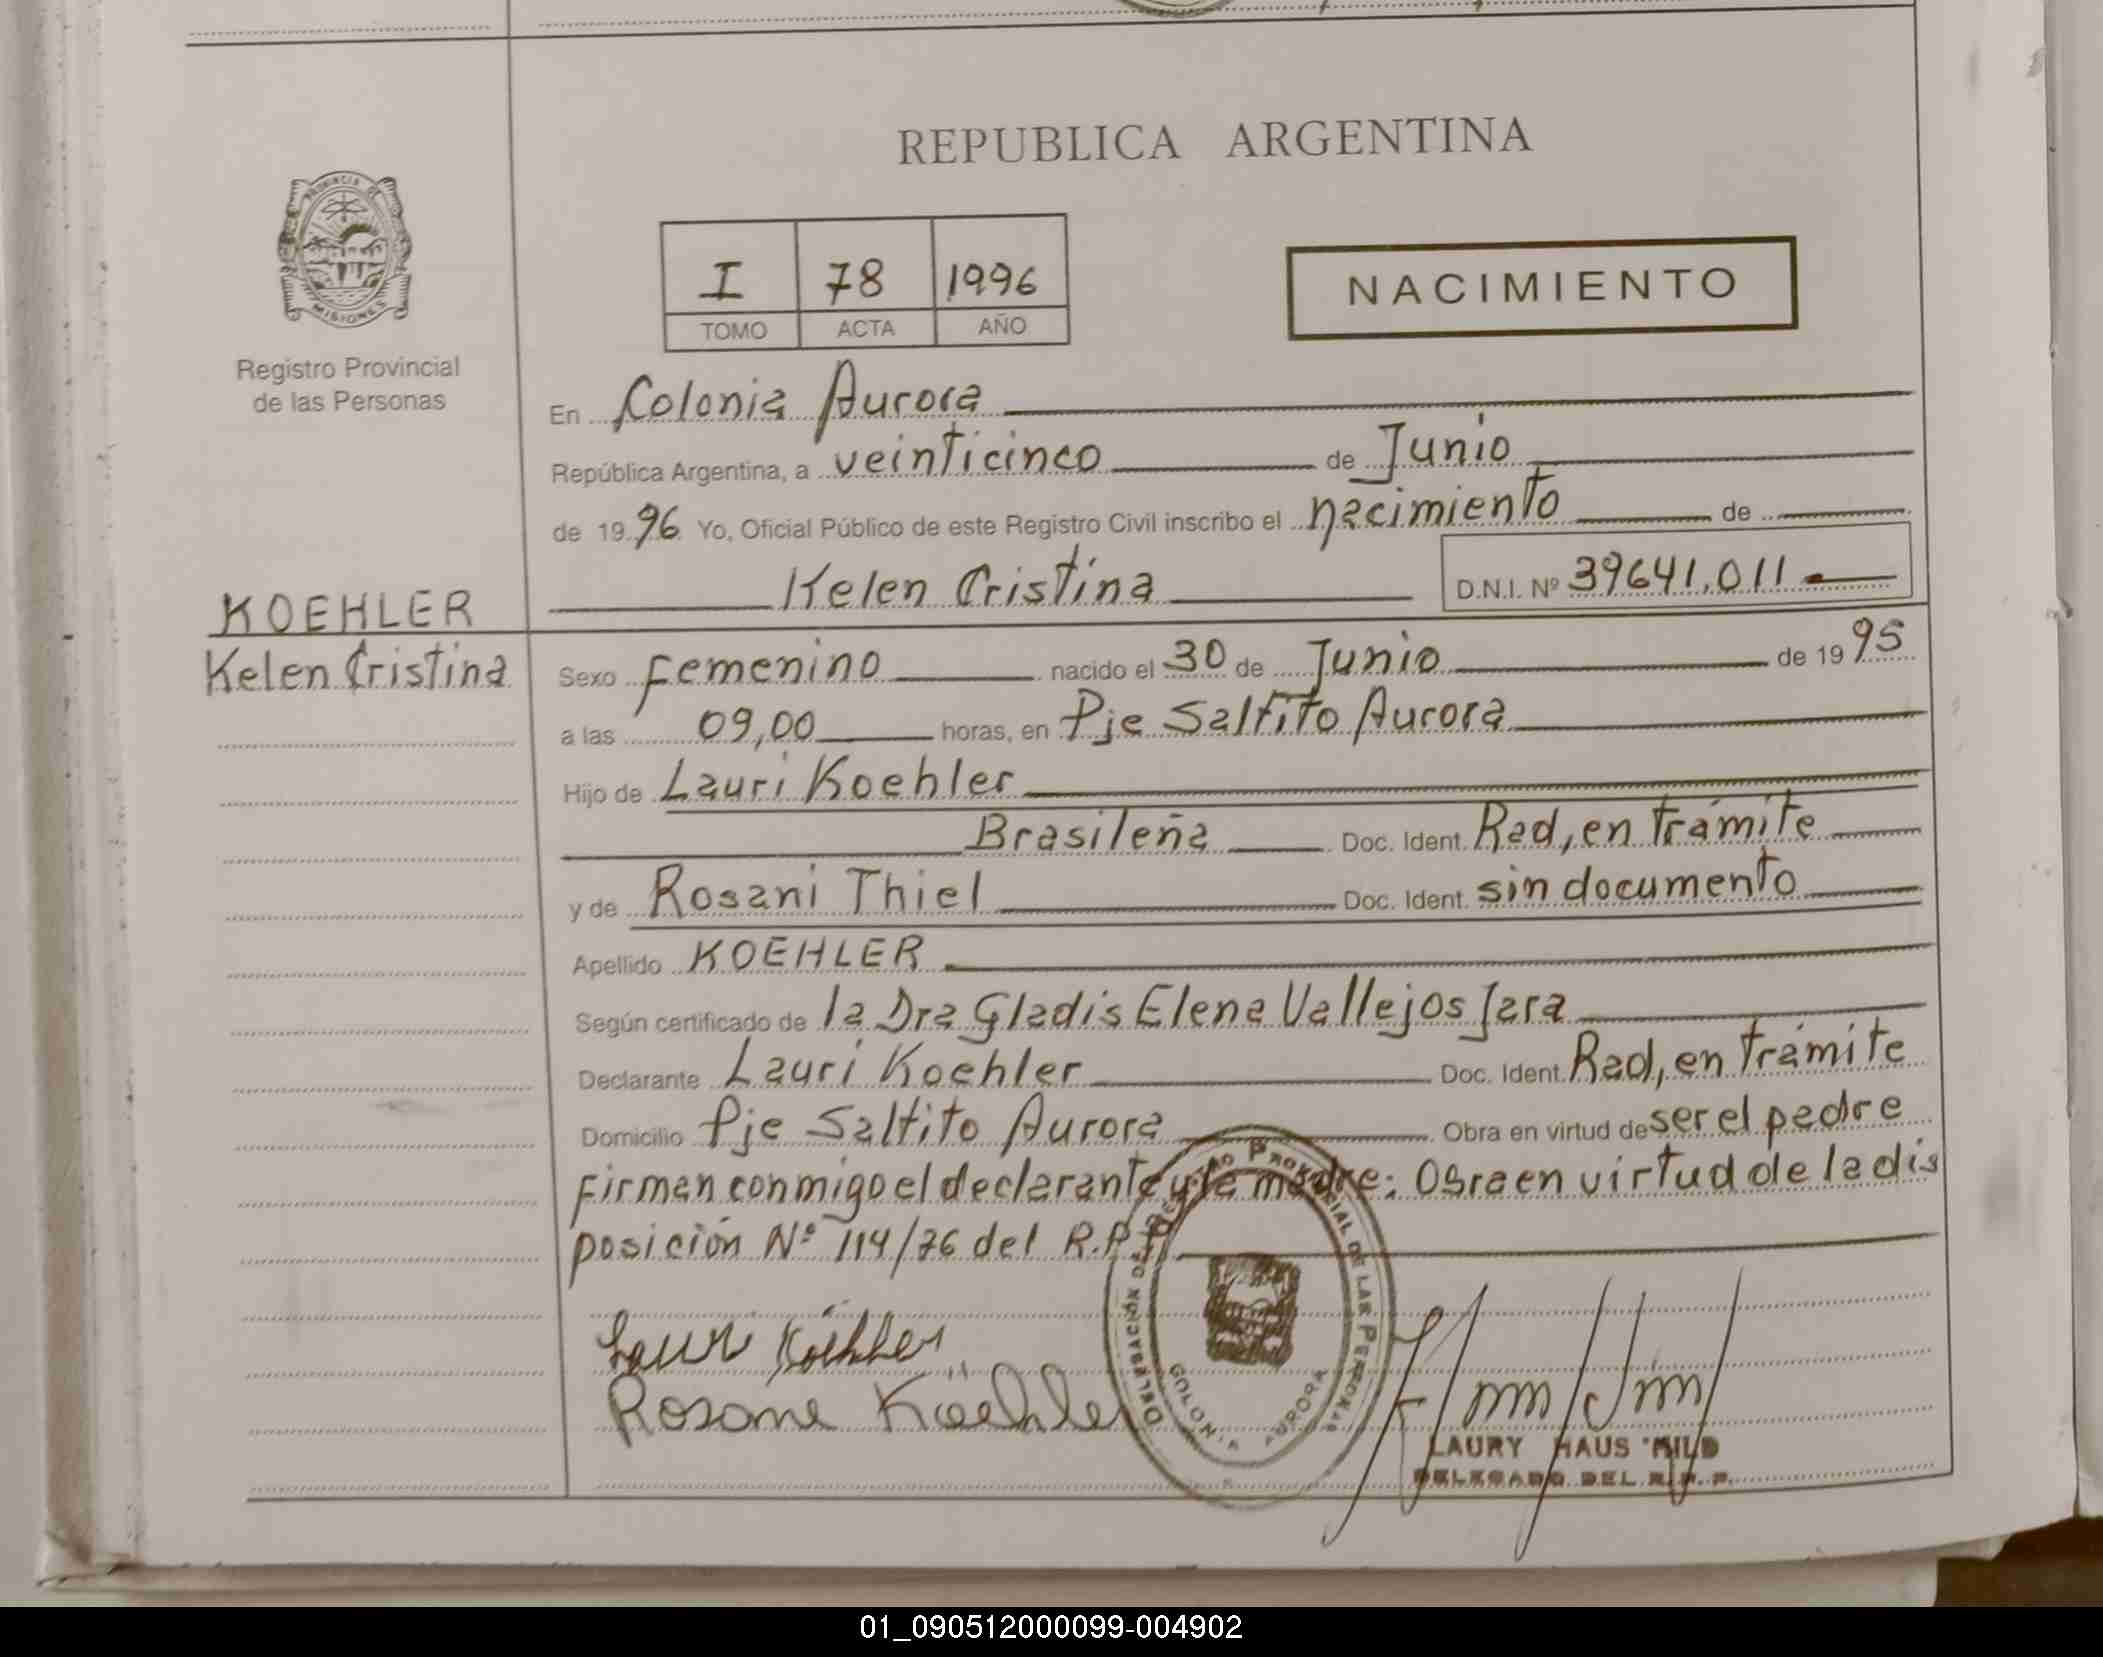 REPUBLICA ARGENTINA
PROVINCIA DE MISIONES
Registro Provincial
de las Personas
I 78 1996
TOMO ACTA AÑO
NACIMIENTO
En Colonia Aurora
República Argentina, a veinticinco de Junio
de 1996 Yo, Oficial Público de este Registro Civil inscribo el nacimiento de
Kelen Cristina D.N.I. Nº 39641.011
KOEHLER
Kelen Cristina
Sexo Femenino nacido el 30 de Junio de 1995
a las 09,00 horas, en Pje Saltito Aurora
Hijo de Lauri Koehler
Brasileña Doc. Ident. Rad, en trámite
y de Rosani Thiel Doc. Ident. sin documento
Apellido KOEHLER
Según certificado de la Dra Gladis Elena Vallejos Jara
Declarante Lauri Koehler Doc. Ident. Rad, en trámite
Domicilio Pje Saltito Aurora Obra en virtud de ser el padre
firman conmigo el declarante y la madre: Obra en virtud de la dis
posición Nº 114/76 del R.P.P.
Lauri Köehler
Rosane Köehler
DELEGACIÓN DEL REGISTRO PROVINCIAL DE LAS PERSONAS
COLONIA AURORA
LAURY HAUS HILD
DELEGADO DEL R.P.P.
01_090512000099-004902